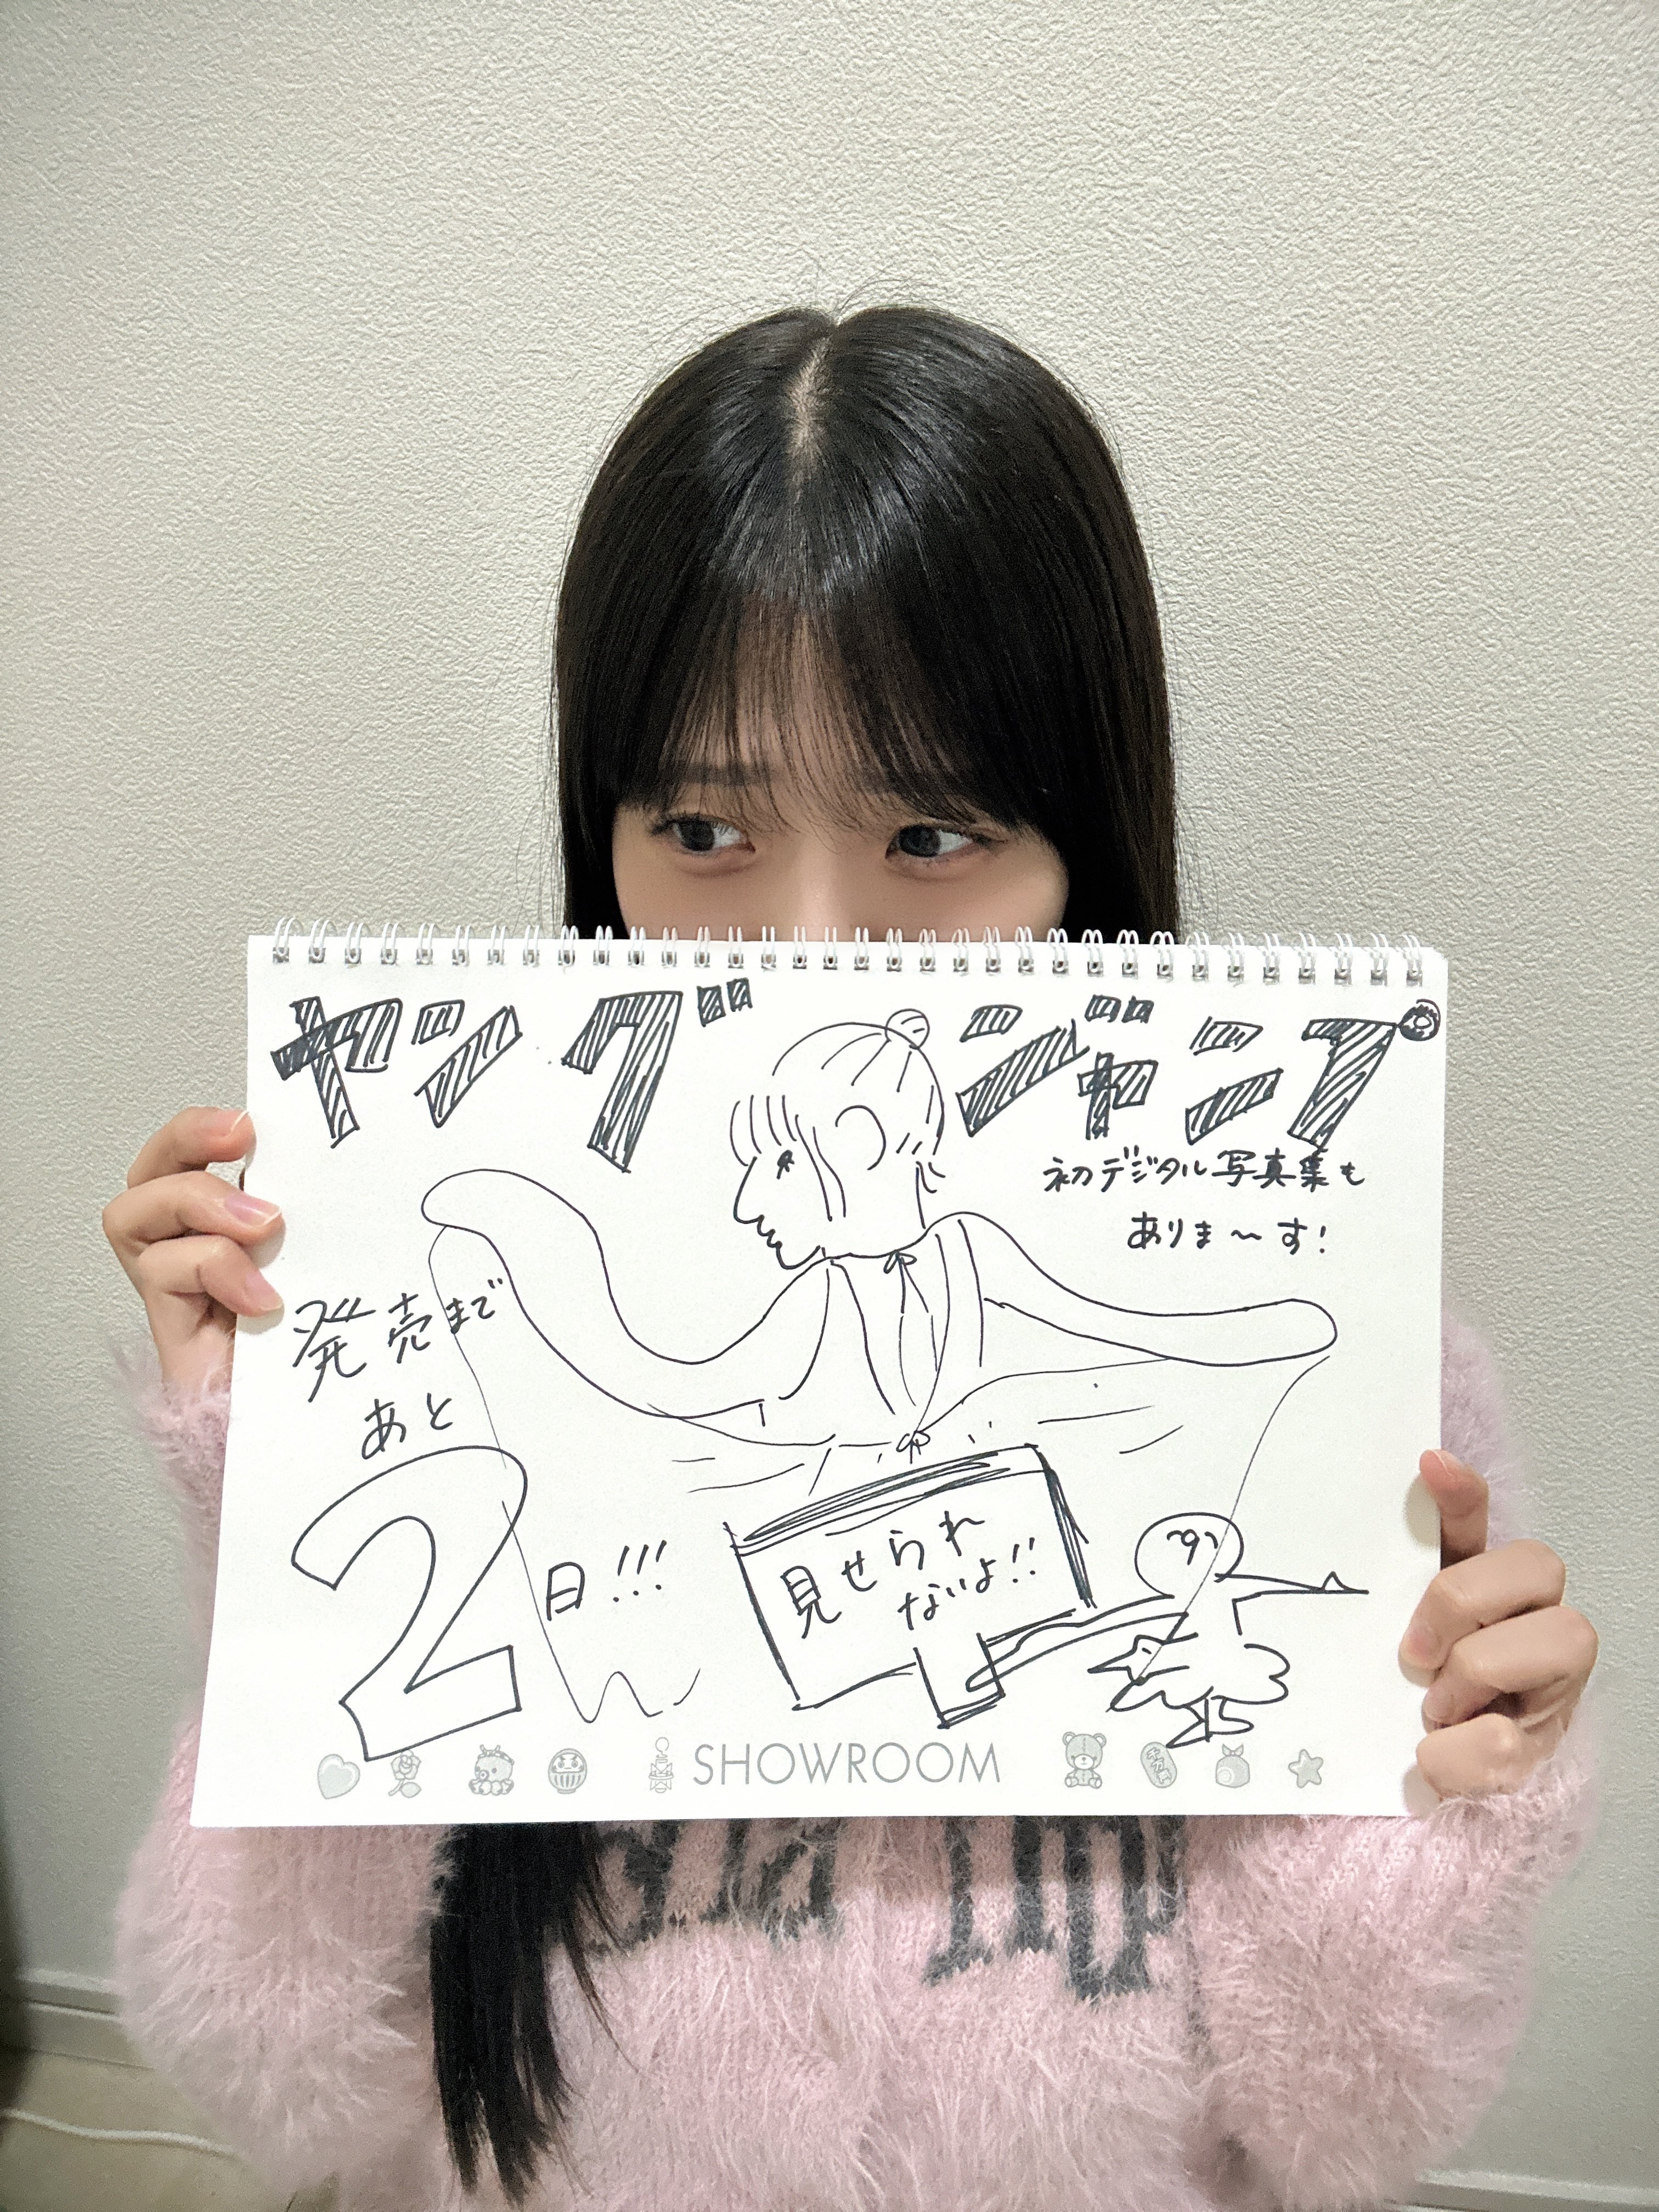 ヤングジャンプ
初デジタル写真集も
ありま〜す!
発売まで
あと
2日!!!
見せられ
ないよ!!
SHOWROOM